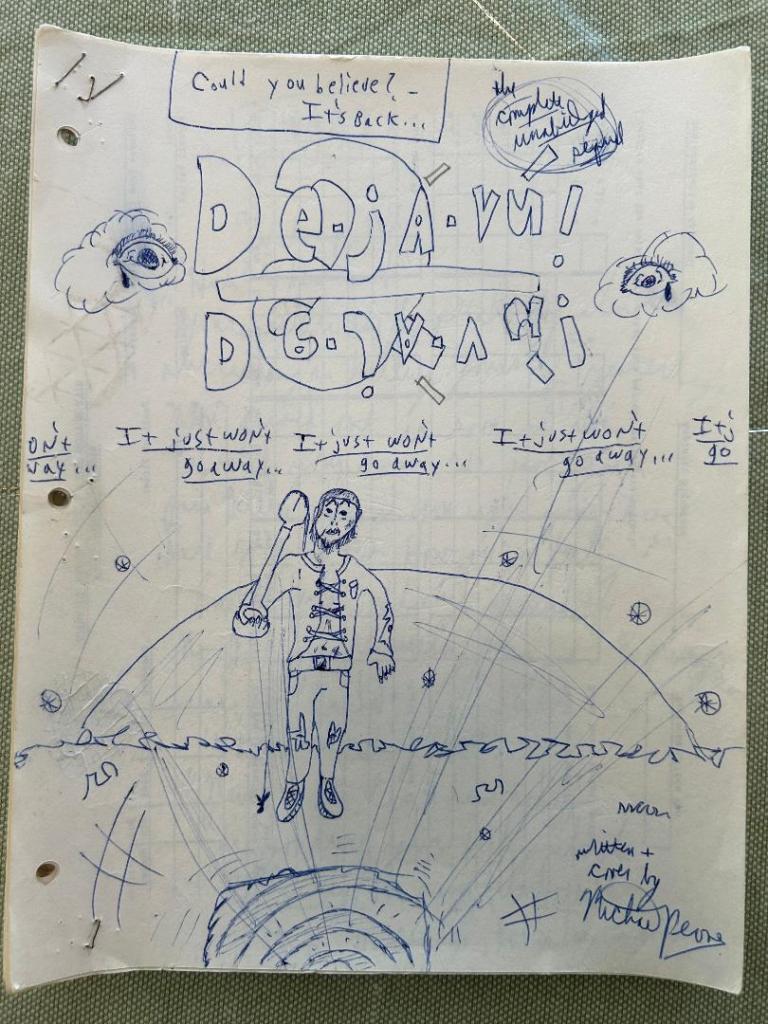 Could you believe? -
It's Back...
the
complete
unabridged
sequel
De-ja-vu!
De-ja-vu!
on't It just won't It just won't It just won't It j
way... go away... go away... go away... go
written +
cover by
Michael Perone